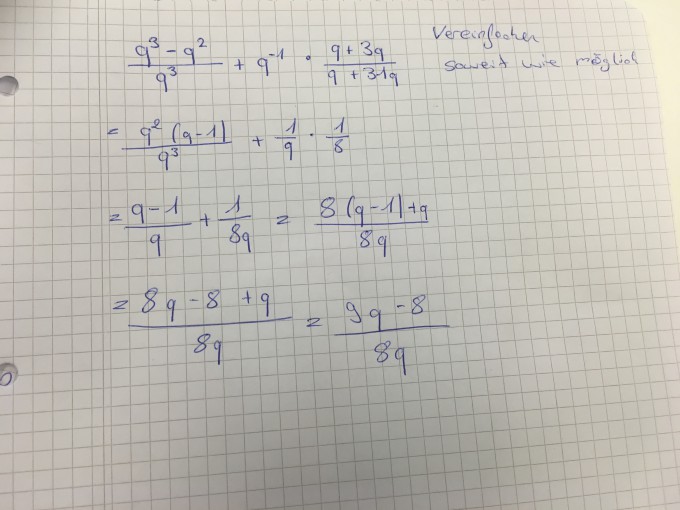 (q³ - q²)/q³ + q⁻¹ · (q + 3q)/(q + 31q) Vereinfachen
soweit wie möglich
= q² (q-1)/q³ + 1/q · 1/8
= (q-1)/q + 1/8q = (8(q-1)+q)/8q
= (8q - 8 + q)/8q = (9q - 8)/8q